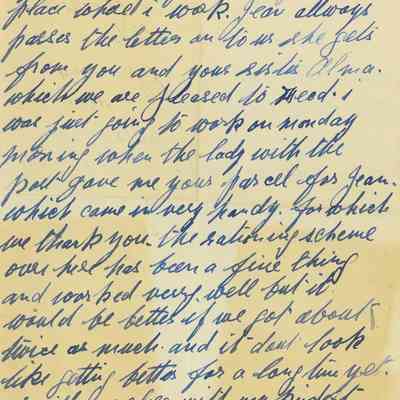 place what i work. Jean allways
passes the letters on to us she gets
from you and your sister Alma.
which we are pleased to Read. i
was just going to work on monday
morning when the lady with the
post gave me your parcel for Jean.
which came in very handy. for which
we thank you. the rationing scheme
over here has been a fine thing
and worked very well but it
would be better if we got about
twice as much. and it dont look
like getting better for a long time yet.